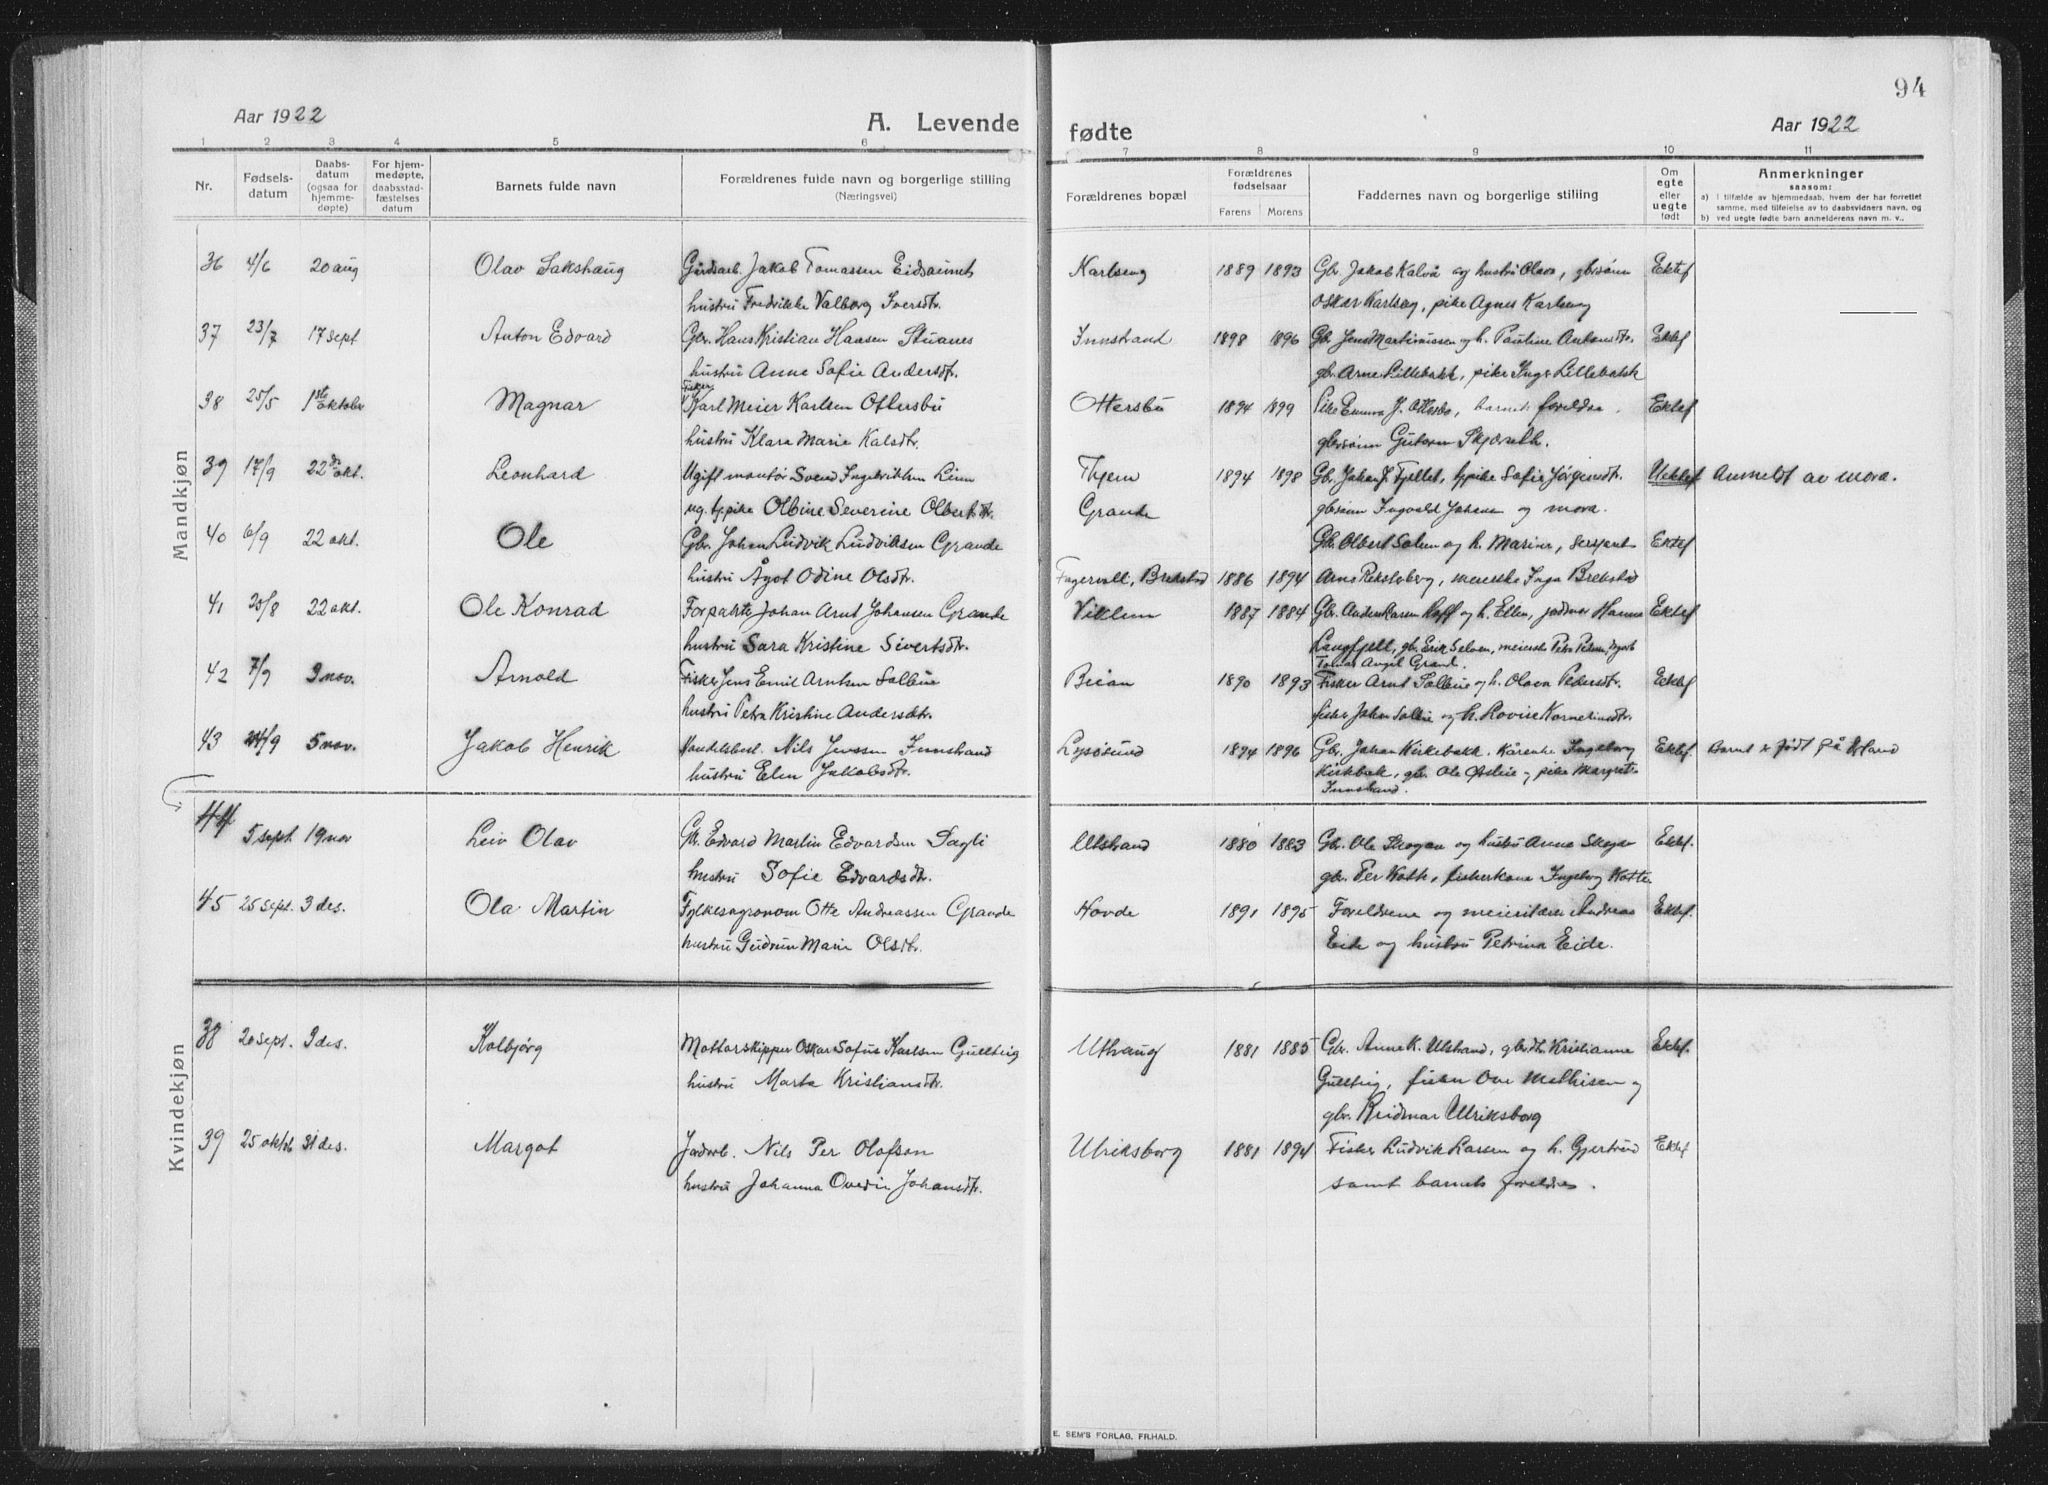 94
Aar 1922
A. Levende
fødte
Aar 1922
1 2 3 4 5 6 7 8 9 10 11
Nr.
Fødsels-
datum
Daabs-
datum
(ogsaa for
hjemme-
døpte)
For hjem-
medøpte,
daabsstad-
fæstelses
datum
Barnets fulde navn
Forældrenes fulde navn og borgerlige stilling
(Næringsvei)
Forældrenes bopæl
Forældrenes
fødselsaar
Farens Morens
Faddernes navn og borgerlige stilling
Om
egte
eller
uegte
født
Anmerkninger
saasom:
a) I tilfælde av hjemmedaab, hvem der har forrettet
samme, med tilføielse av to daabsvidners navn, og
b) ved uegte fødte barn anmelderens navn m. v..
Mandkjøn
36 4/6 20 aug Olav Sakshaug Gårdsarb. Jakob Tomassen Eidsaunet Karlseng 1889 1893 Gbr. Jakob Kalvå og hustru Olava, gbrsønn Ektef
hustru Fredrikke Valborg Iversdtr. Oskar Karlseng, pike Agnes Karlseng
37 23/7 17 sept Anton Edvard Gbr. Hans Kristian Hansen Stuanes Innstrand 1898 1896 Gb. Jens Martinussen og h. Pauline Antonsdtr. Ektef
hustru Anne Sofie Andersdtr. gb. Arne Lillebakk, pike Inga Lillebakk
38 25/5 1ste oktober Magnar Fisker Karl Meier Karlsen Ottersbu Ottersbu 1894 1899 Pike Emma J. Ottersbo, barnets foreldre. Ektef
hustru Klara Marie Kalsdtr. gbrsønn Gutorm Skjærseth.
39 17/9 22de okt. Leonhard Ugift montør Svend Ingebriktsen Linn Thjem 1894 1898 Gb. Johan J. Fjellet, tjpike Sofie Jørgensdtr. Uektef Anmeldt av mora.
ug. tjpike Olbine Severine Olbertsdtr. Grande gbrsønn Ingvald Johansen og mora.
40 6/9 22 okt. Ole Gbr. Johan Ludvik Ludviksen Grande Gbr. Olbert Solem og h. Marine, sersjant Ektef
hustru Ågot Odine Olsdtr. Fagervoll, Brekstad 1886 1894 Arne Reksteberg, meierske Inga Brekstad
41 25/8 22 okt. Ole Konrad Forpakter Johan Arnt Johansen Grande Viklem 1887 1884 Gbr. Anders Larsen Hoff og h. Ellen, jordmor Hanna Ektef
hustru Sara Kristine Sivertsdtr. Langfjell, gb. Erik Selven, meierske Petra Petersen,
42 7/9 3 nov. Arnold Fisker Jens Emil Arntsen Solbue Beian 1890 1893 Fisker Arnt Solbue og h. Olava Pedersdtr. Ektef
hustru Petra Kristine Andersdtr. fisker Johan Solbue og h. Lovise Korneliusdtr.
43 24/9 5 nov. Jakob Henrik Handelsbest. Nils Jenssen Innstrand Lysøsund 1894 1896 Gbr. Johan Kirkebakk. Kårenke Ingeborg Ektef. Barnet er født på Ørland
hustru Elen Jakobsdtr. Kirkbak, gbr. Ole Opslie og pike Margrete
Innstrand.
44 5 sept 19 nov Leiv Olav Gbr. Edvard Martin Edvardsen Dagli Utstrand 1880 1883 Gbr. Ole Skogan og hustru Anna Skogan Ektef.
hustru Sofie Edvardsdtr. gbr. Per Kotte, fiskerkone Ingeborg Kotte.
45 25 sept. 3 des. Ola Martin Fylkesagronom Otte Andreassen Grande Hovde 1891 1895 Foreldrene og meieritærer Andreas Ektef.
hustru Gudrun Marie Olsdtr. Eide og hustru Petrina Eide.
Kvindekjøn
38 20 sept. 3 des. Kolbjørg Mottorskipper Oskar Sofus Karlsen Gullteig Uthaug 1881 1885 Gbr. Anna K. Ulstrand, gbrdtr. Kristianne Ektef.
hustru Marta Kristiansdtr. Gullteig, fisker Ove Mathisen og
gbr. Reidmar Ulriksborg
39 25 oktb 31 des. Margot Jordarb. Nils Per Olofson Ulriksborg 1881 1894 Fisker Ludvik Larsen og h. Gjertrud Ektef
hustru Johanna Ovedie Johansdtr. samt barnets foreldre.
E. SEM'S FORLAG, FR.HALD.